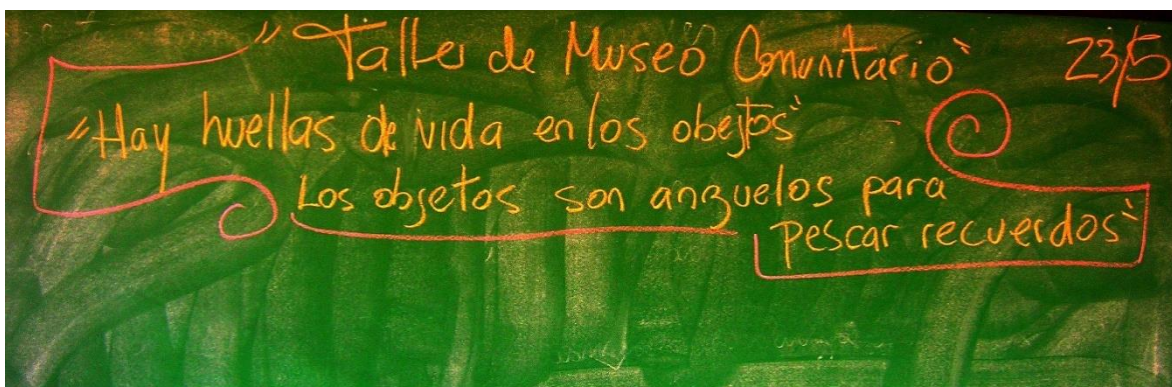 "Taller de Museo Comunitario" 23/5
"Hay huellas de vida en los obejtos"
Los objetos son anzuelos para
pescar recuerdos"